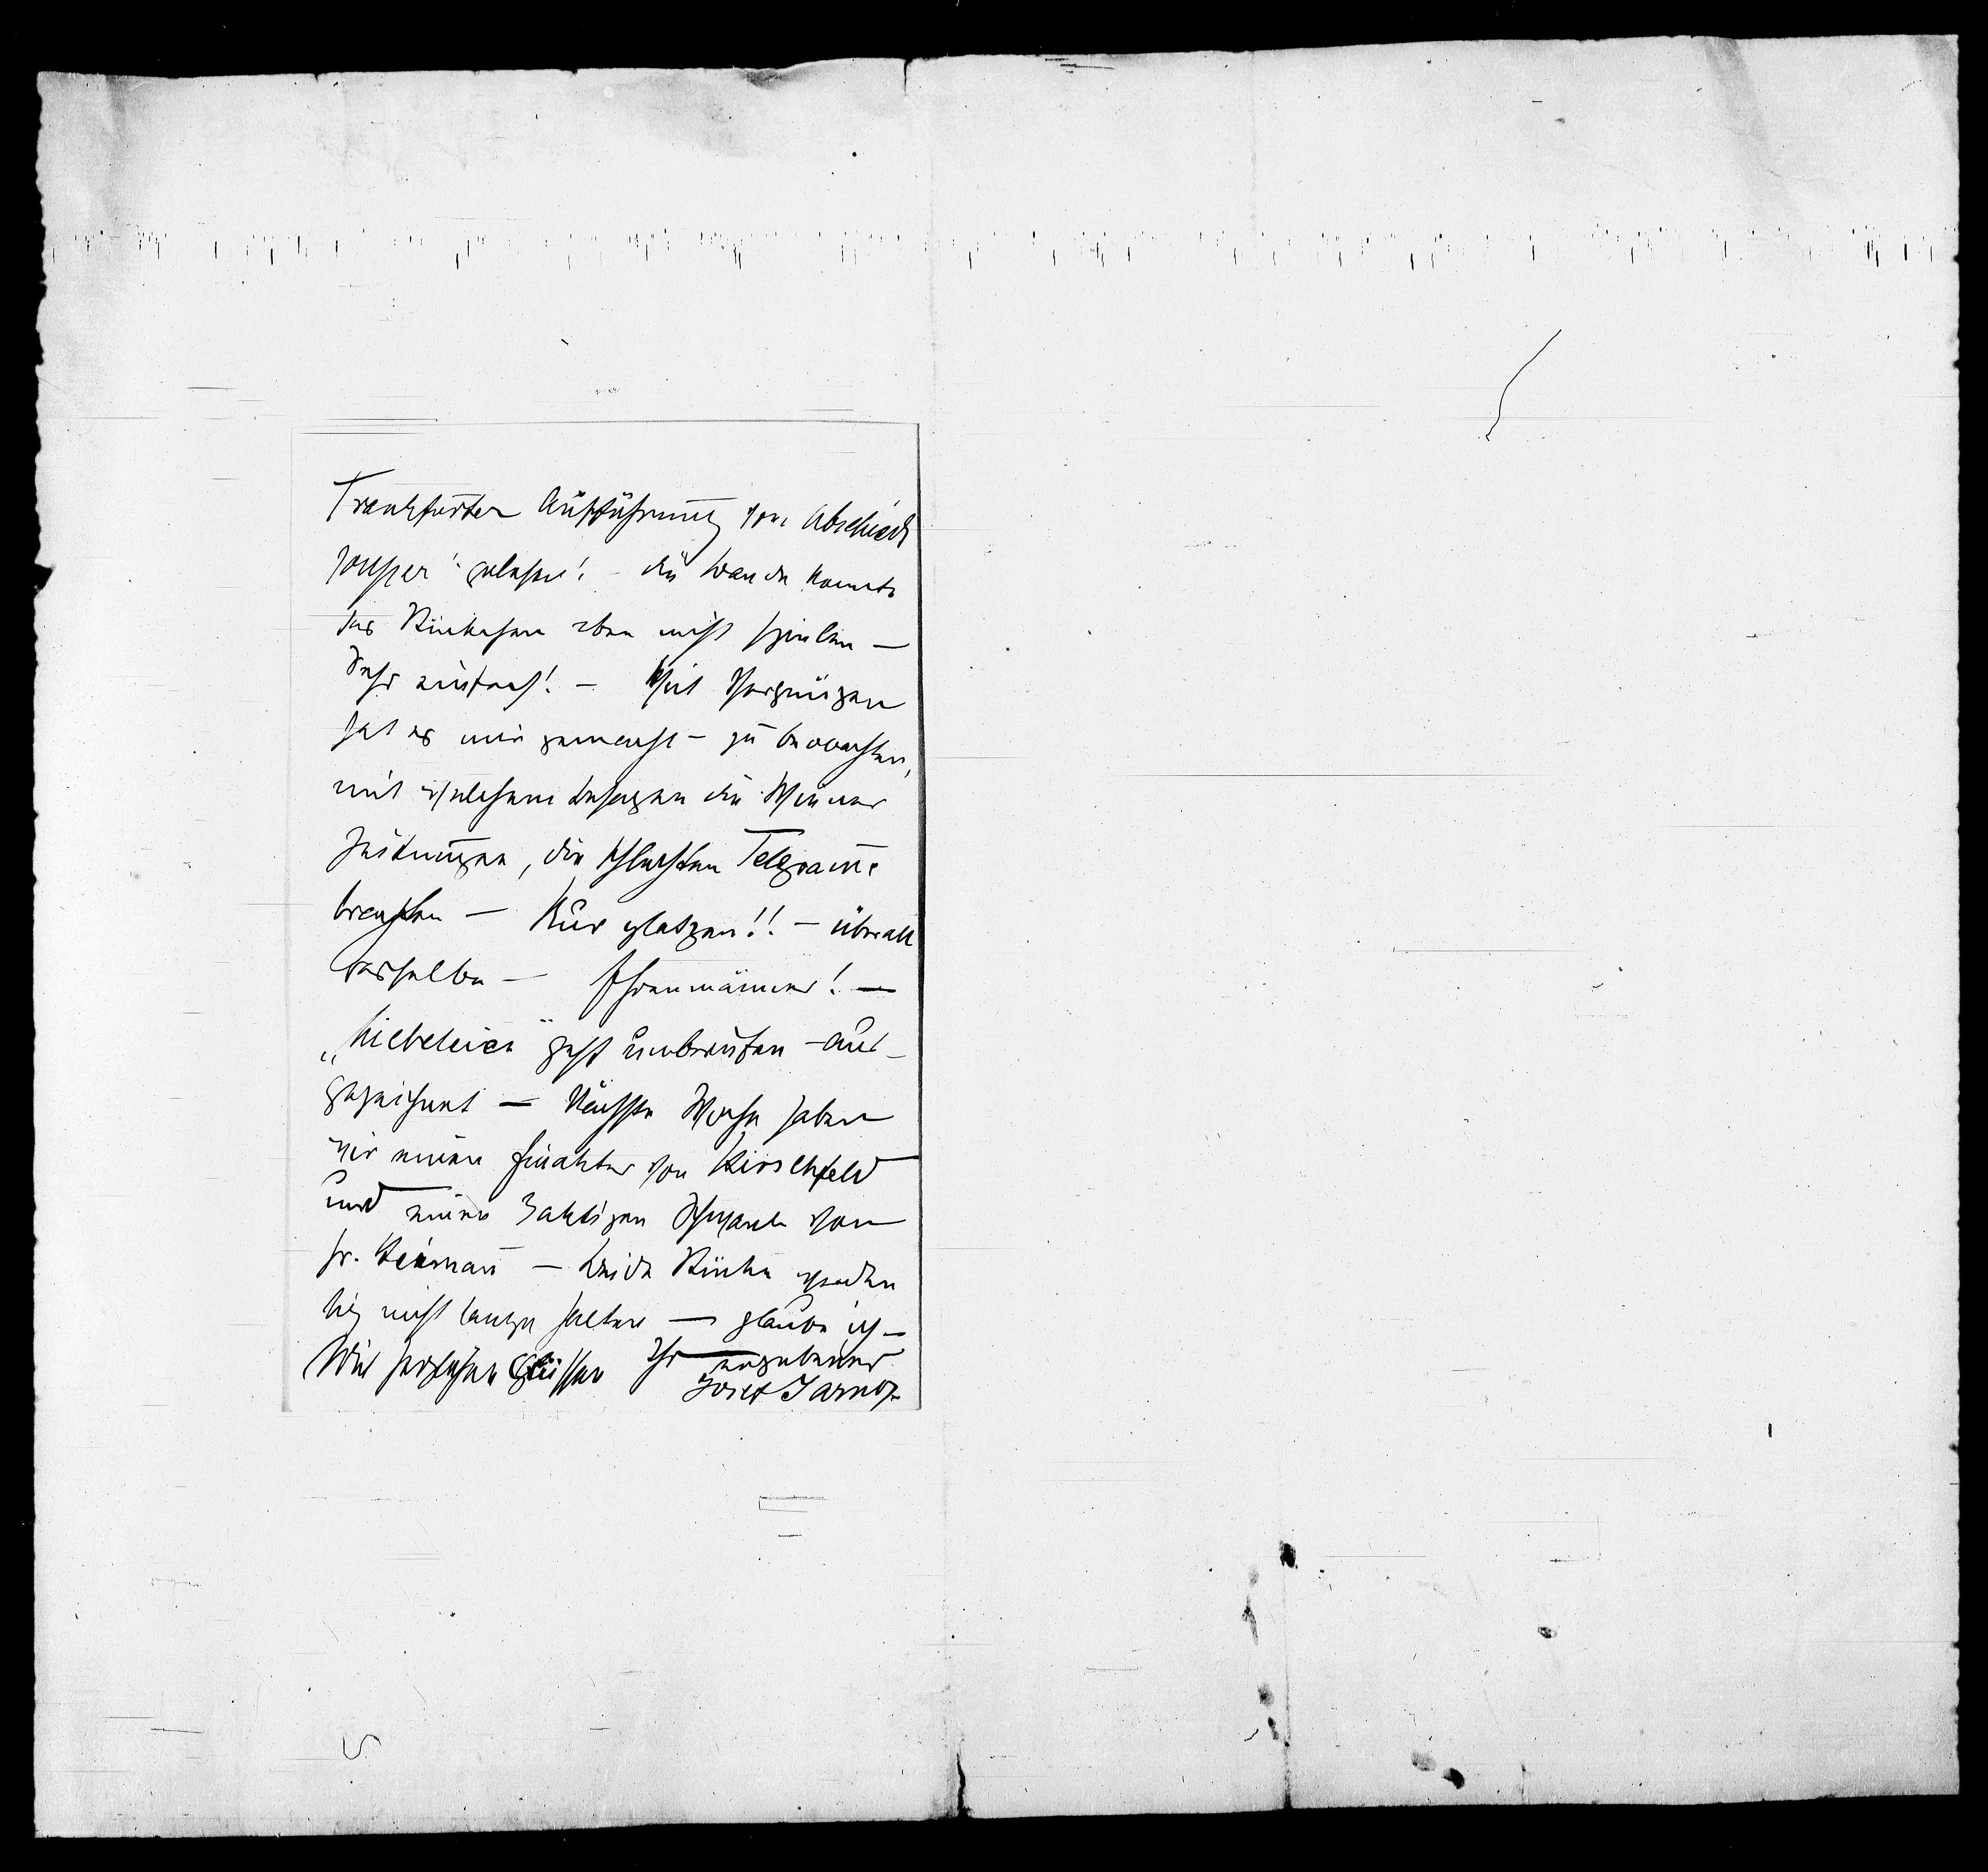 Frankfurter Aufführung von Abschieds
souper" gelesen! – die Bande konnte
das Stückchen eben nicht spielen –
Sehr einfach! – Viel Vergnügen
hat es mir gemacht – zu beobachten,
mit welchem Behagen die Wiener
Zeitungen, die schlechten Telegram̅e
brachten – Nur platzen!! – überall
dasselbe – Ehrenmänner! –
„Liebelei" geht unberufen – aus-
gezeichnet – Nächste Woche haben
wir einen Einakter von Hirschfeld
und einen 3aktigen Schwank von
Hr. – Beide Stücke werden
sich nicht lange halten – glaube ich –
Mit herzlichen Grüssen Ihr ergebener
Josef Jarno